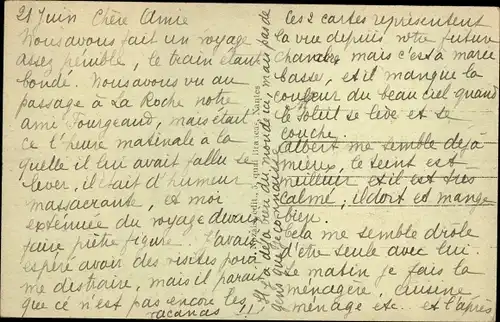 21 Juin Chère Amie
Nous avons fait un voyage
assez pénible, le train étant
bondé. Nous avons vu au
passage à La Roche notre
ami Fourgeaud, mais était
ce l'heure matinale à la
quelle il lui avait fallu se
lever, il était d'humeur
massacrante, et moi
exténuée du voyage devais
faire piètre figure. J'avais
espéré avoir des visites pour
me distraire, mais il parait
que ce n'est pas encore les
vacances !!
Il y a déjà bien du monde ici, mais pas de
gens que je connaisse
Nantes
Les 2 cartes représentent
la vue depuis votre future
chambre mais c'est à marée
basse, et il manque la
couleur du beau ciel quand
le soleil se lève et se
couche.
Albert me semble déjà
mieux, le teint est
meilleur et il est très
calme, il doit et mange
bien.
Cela me semble drôle
d'être seule avec lui.
Le matin je fais la
ménagère, cuisine
ménage etc. et l'après